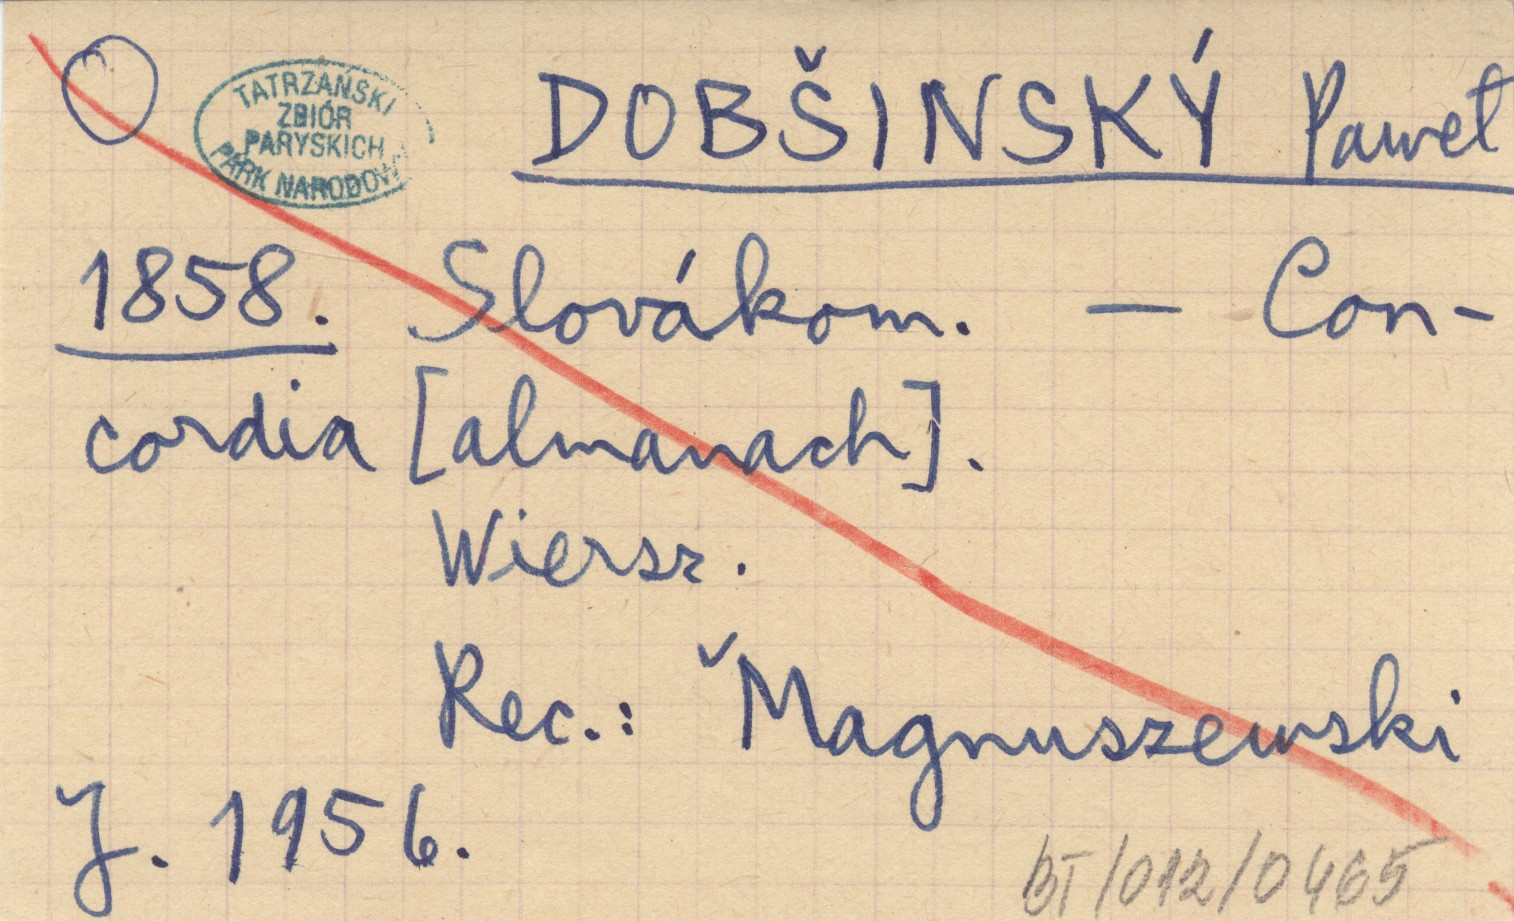 TATRZAŃSKI
ZBIÓR
PARYSKICH
PARK NARODOW
DOBŠINSKÝ Paweł
1858. Slovákom. — Con-
cordia [almanach].
Wiersz.
Rec.: ˇMagnuszewski
J. 1956.
BT/012/0465